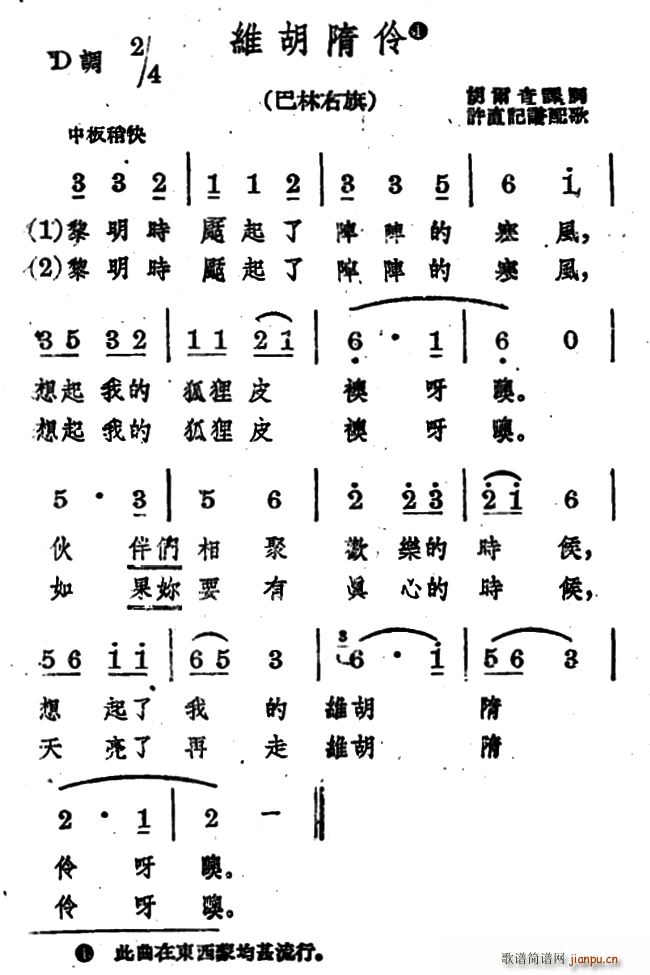 維胡隋伶❶
D調 2/4
(巴林右旗)
胡爾查譯詞
許直記譜配歌
中板稍快
3 3 2 | 1 1 2 | 3 3 5 | 6 i |
(1)黎明時 颳起了 陣陣的 寒風,
(2)黎明時 颳起了 陣陣的 寒風,
35 32 | 11 21 | 6 · 1 | 6 0 |
想起我的 狐狸皮 襖呀噢。
想起我的 狐狸皮 襖呀噢。
5 · 3 | 5 6 | 2 23 | 21 6 |
伙伴們相聚歡樂的時候,
如果妳要有眞心的時候,
56 11 | 65 3 | 3 6 · 1 | 56 3 |
想起了我的維胡隋
天亮了再走維胡隋
2 · 1 | 2 – ‖
伶呀噢。
伶呀噢。
❶ 此曲在東西蒙均甚流行。
歌谱简谱网
jianpu.cn